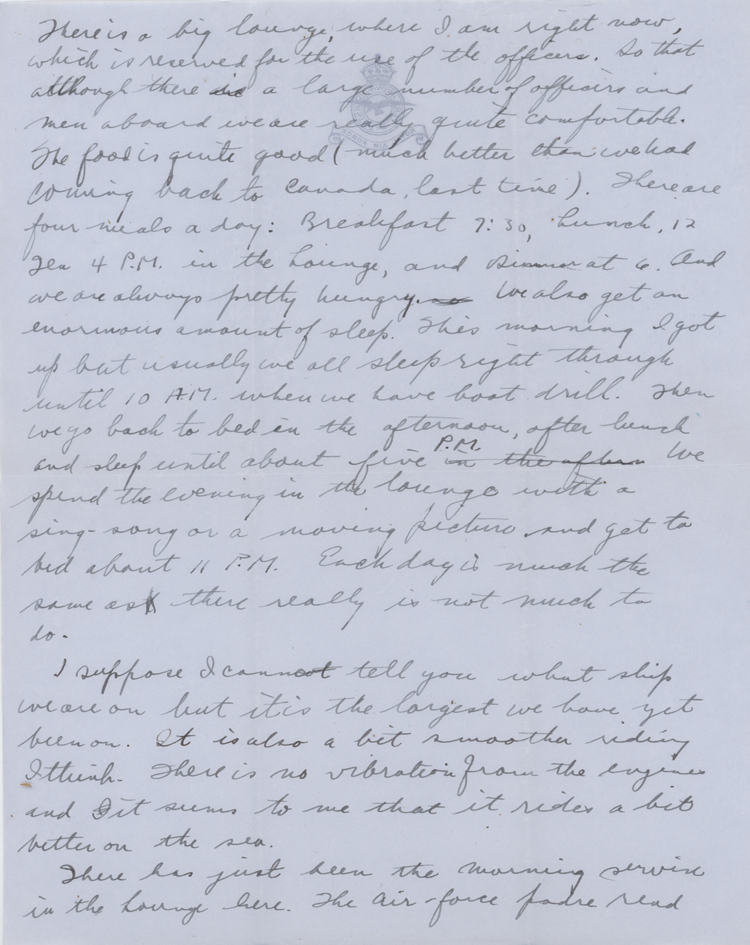 There is a big lounge, where I am right now,
which is reserved for the use of the officers. So that
although there is a large number of officers and
men aboard we are really quite comfortable.
The food is quite good (much better than we had
coming back to Canada last time). There are
four meals a day: Breakfast 7:30, Lunch, 12
Tea 4 P.M. in the Lounge, and Dinner at 6. And
we are always pretty hungry. We also get an
enormous amount of sleep. This morning I got
up but usually we all sleep right through
until 10 A.M. when we have boat drill. Then
we go back to bed in the afternoon, after lunch
and sleep until about five P.M. in the aftern We
spend the evening in the lounge with a
sing-song or a moving picture and get to
bed about 11 P.M. Each day is much the
same as there really is not much to
do.
I suppose I cannot tell you what ship
we are on but it is the largest we have yet
been on. It is also a bit smoother riding
I think. There is no vibration from the engines
and it seems to me that it rides a bit
better on the sea.
There has just been the morning service
in the lounge here. The Air-force padre read